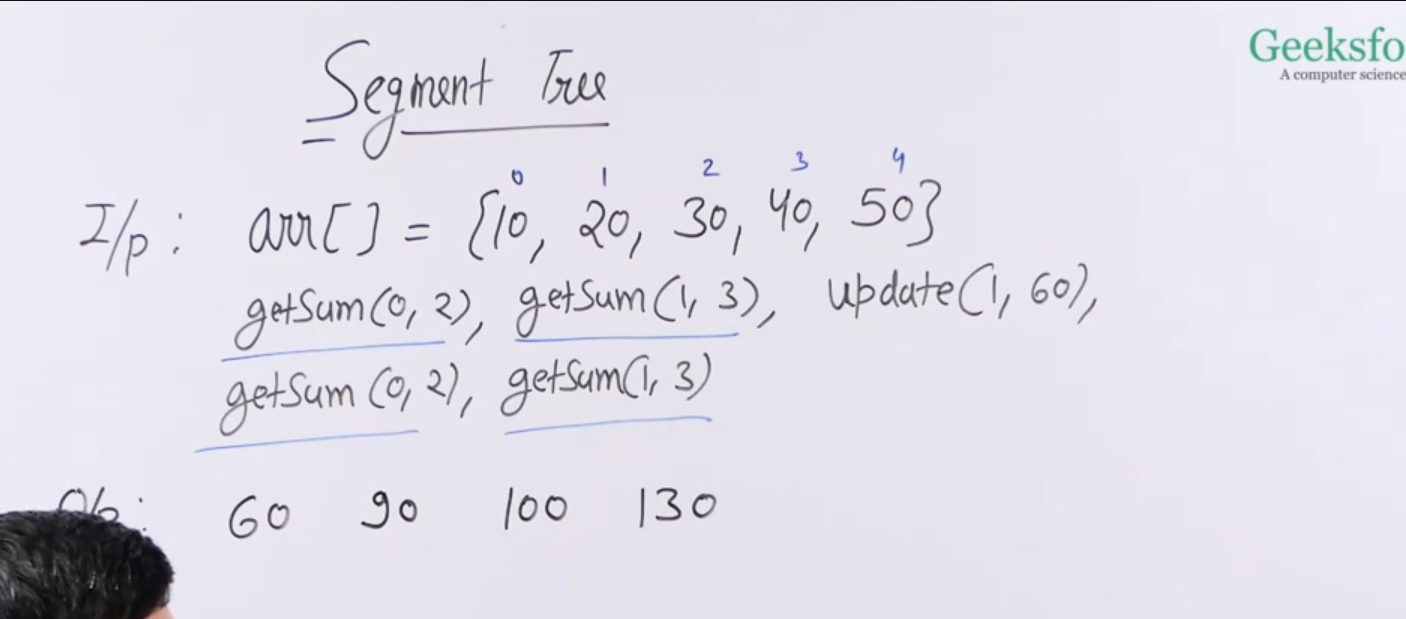 Geeksfo
A computer science
Segment Tree
0 1 2 3 4
I/p: arr[] = {10, 20, 30, 40, 50}
getSum(0, 2), getSum(1, 3), update(1, 60),
getSum(0, 2), getSum(1, 3)
60 90 100 130